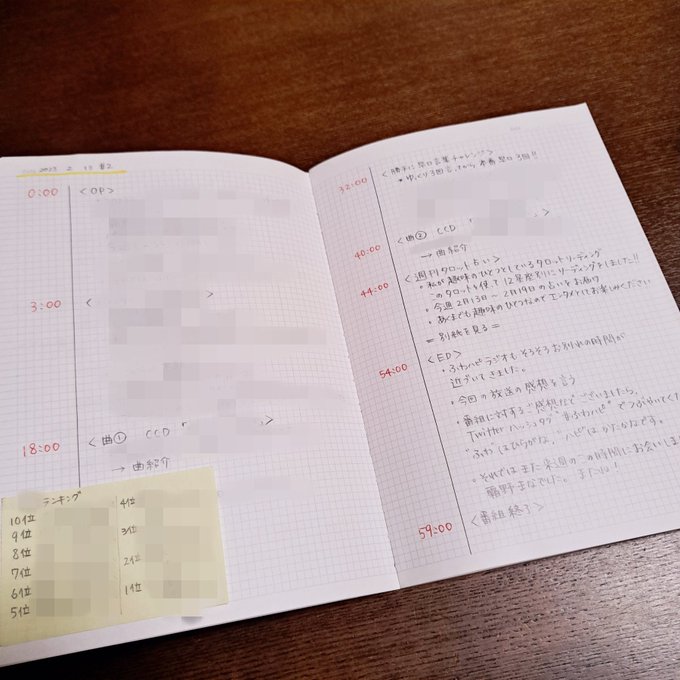 2023 2 13 #2
0:00
<OP>
3:00
<
>
18:00
<曲① CCD 「
>
→ 曲紹介
ランキング
10位
9位
8位
7位
6位
5位
4位
3位
2位
1位
32:00
<勝手に早口言葉チャレンジ>
* ゆっくり3回言ってから本番早口3回!!
40:00
<曲② CCD 「
>
→ 曲紹介
44:00
<週刊タロット占い>
・私が趣味のひとつとしているタロットリーディング
このタロットを使って12星座別にリーディングをしました!!
・今週2月13日〜2月19日の占いをお届け
・あくまでも趣味のひとつなのでエンタメとしてお楽しみください
= 別紙を見る =
54:00
<ED>
・ふわハピラジオもそろそろお別れの時間が
近づいてきました。
・今回の放送の感想を言う
・番組に対するご感想などございましたら、
Twitter ハッシュタグ "#ふわハピ" でつぶやいてくだ
"ふわ"はひらがな、"ハピ"はかたかなです。
・それではまた来週のこの時間にお会いしま
霧野まなでした。またね!
59:00
<番組終了>